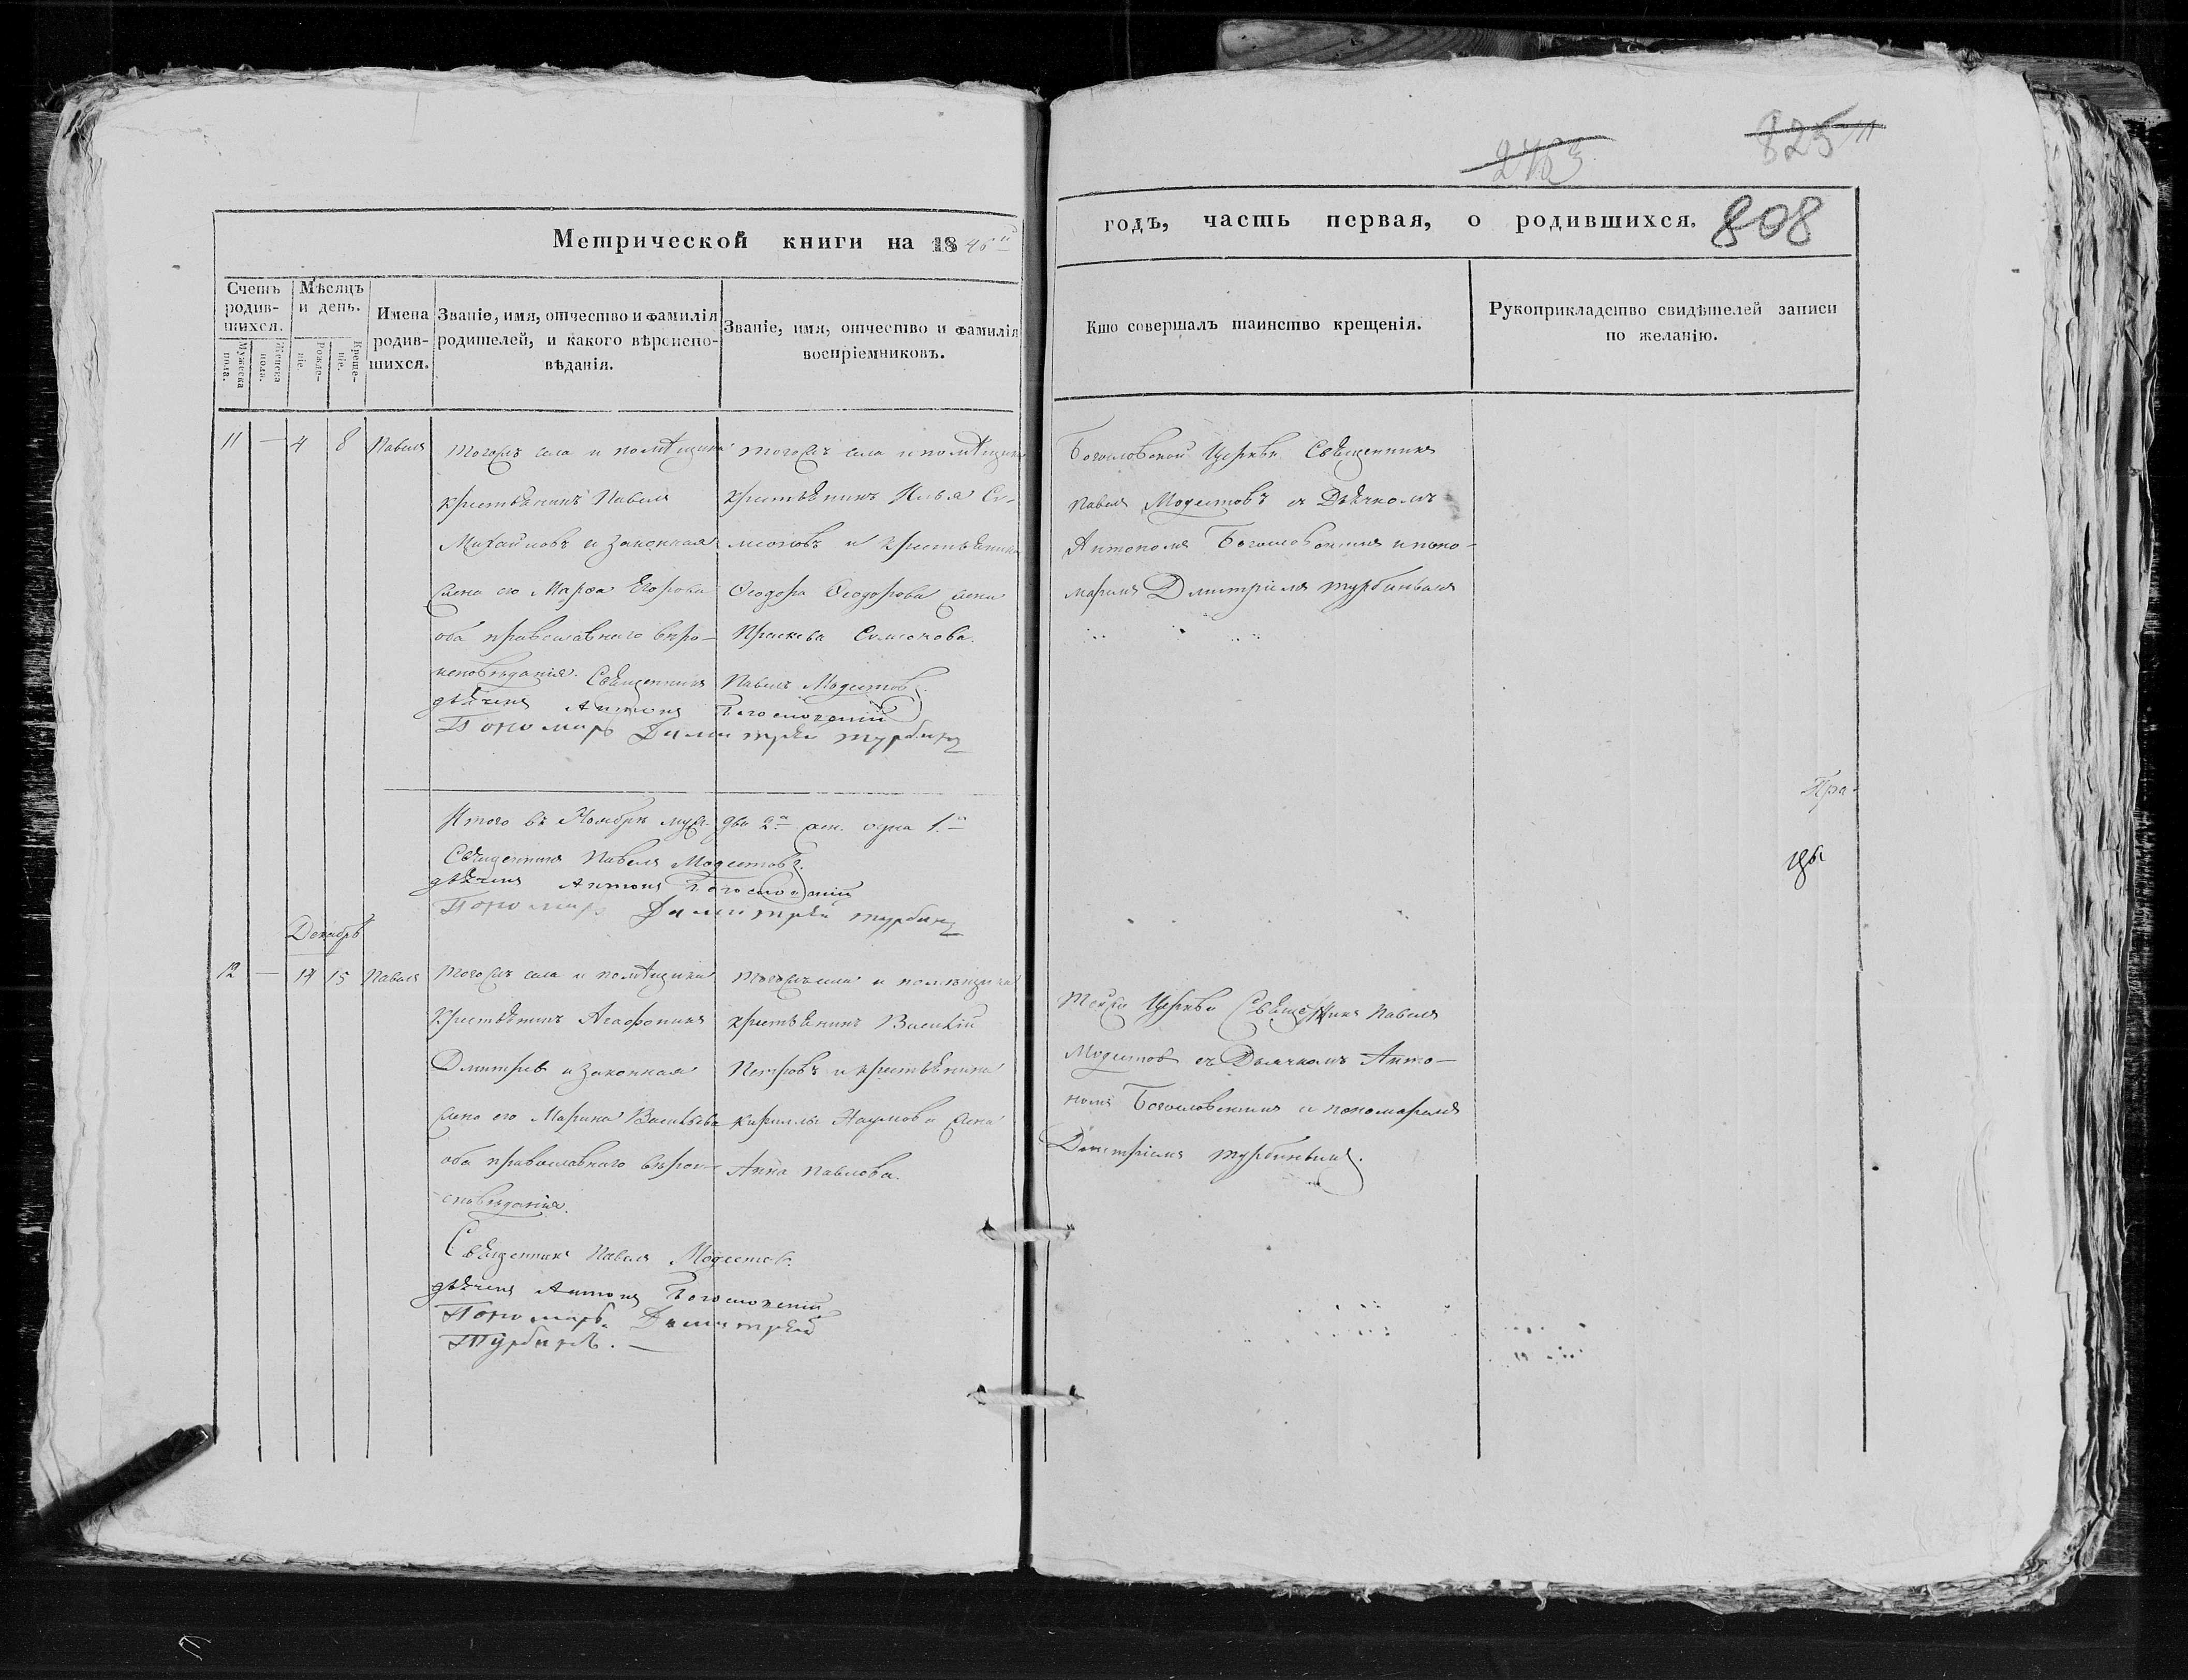 Метрической книги на 1846й
годъ, часть первая, о родившихся.
243
825
808
Счетъ родив-шихся.
Мужеска пола.
Женска пола.
Мѣсяцъ и день.
Рожде-ніе.
Креще-ніе.
Имена родив-шихся.
Званіе, имя, отчество и фамилія
родителей, и какого вѣроиспо-
вѣданія.
Званіе, имя, отчество и фамилія
воспріемниковъ.
Кто совершалъ таинство крещенія.
Рукоприкладство свидѣтелей записи
по желанію.
11 — 4 8 Павелъ
тогожъ села и помѣщика
крестьянинъ Павелъ
Михайловъ и законная
жена его Марфа Егорова
оба православнаго вѣро-
исповѣданія. Священникъ Павелъ Модестовъ.
дьячекъ Антонъ Богословскій
Пономарь Димитрей Турбинъ
тогожъ села и помѣщика
крестьянинъ Илья Си-
меоновъ и крестьянина
Ѳеодора Ѳеодорова жена
Праскева Симеонова.
Богословской Церкви Священникъ
Павелъ Модестовъ съ Дьячкомъ
Антономъ Богословскимъ и поно-
маремъ Дмитріемъ Турбинымъ
Итого въ Ноябрѣ муж. два 2.а жен. одна 1.а
Священникъ Павелъ Модестовъ.
дьячекъ Антонъ Богословскій
Пономарь Димитрей Турбинъ
Пра-
цы
Декабрь
12 — 14 15 Павелъ
тогожъ села и помѣщика
крестьянинъ Агафоникъ
Дмитріевъ и законная
жена его Марина Васильева
оба православнаго вѣрои-
сповѣданія.
Священникъ Павелъ Модестовъ.
дьячекъ Антонъ Богословскій
Пономарь Димитрей
Турбинъ. —
тогожъ села и помѣщика
крестьянинъ Василій
Петровъ и крестьянина
Кириллы Наумова жена
Анна Павлова.
тойже Церкви Священникъ Павелъ
Модестовъ съ Дьячкомъ Анто-
номъ Богословскимъ и пономаремъ
Дмитріемъ Турбинымъ.